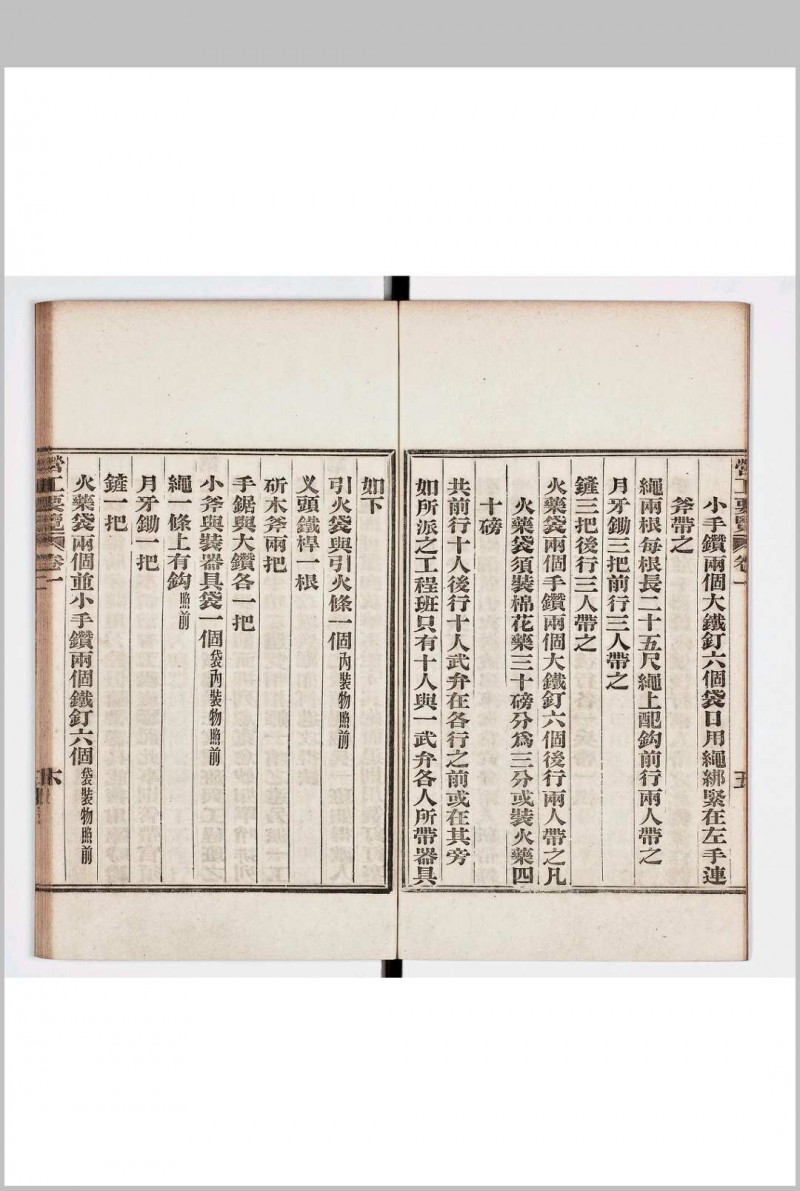 營工要覽 卷一 五
小手鑽兩個大鐵釘六個袋口用繩綁緊在左手連
斧帶之
繩兩根每根長二十五尺繩上配鈎前行兩人帶之
月牙鋤三把前行三人帶之
鏟三把後行三人帶之
火藥袋兩個手鑽兩個大鐵釘六個後行兩人帶之凡
火藥袋須裝棉花藥三十磅分爲三分或裝火藥四
十磅
共前行十人後行十人武弁在各行之前或在其旁
如所派之工程班只有十人與一武弁各人所帶器具
如下
引火袋與引火條一個內裝物照前
义頭鐵桿一根
斫木斧兩把
手鋸與大鑽各一把
小斧與裝器具袋一個袋內裝物照前
繩一條上有鈎照前
月牙鋤一把
鏟一把
火藥袋兩個並小手鑽兩個鐵釘六個袋裝物照前
營工要覽 卷一